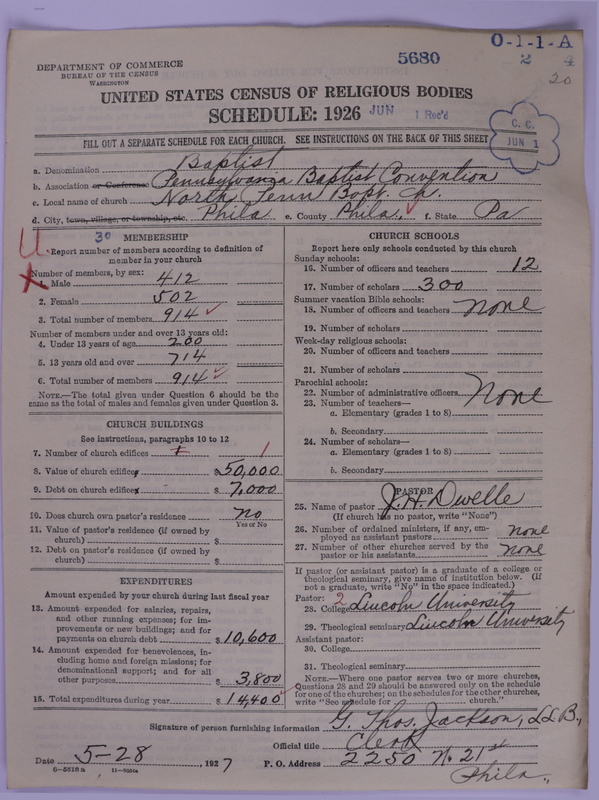 5680
O-1-1-A
2 4
20
DEPARTMENT OF COMMERCE
BUREAU OF THE CENSUS
WASHINGTON
UNITED STATES CENSUS OF RELIGIOUS BODIES
SCHEDULE: 1926
JUN 1 Rec'd
C. C.
JUN 1
FILL OUT A SEPARATE SCHEDULE FOR EACH CHURCH. SEE INSTRUCTIONS ON THE BACK OF THIS SHEET
a. Denomination Baptist
b. Association or Conference Pennsylvania Baptist Convention
c. Local name of church North Penn Bapt. Ch.
d. City, town, village, or township, etc. Phila e. County Phila. f. State Pa
30
U
X
MEMBERSHIP
Report number of members according to definition of
member in your church
Number of members, by sex:
1. Male 412
2. Female 502
3. Total number of members 914
Number of members under and over 13 years old:
4. Under 13 years of age 200
5. 13 years old and over 714
6. Total number of members 914
NOTE.—The total given under Question 6 should be the
same as the total of males and females given under Question 3.
CHURCH BUILDINGS
See instructions, paragraphs 10 to 12
7. Number of church edifices 1
8. Value of church edifices $50,000
9. Debt on church edifices $ 7,000
10. Does church own pastor's residence no
Yes or No
11. Value of pastor's residence (if owned by
church) $
12. Debt on pastor's residence (if owned by
church) $
EXPENDITURES
Amount expended by your church during last fiscal year
13. Amount expended for salaries, repairs,
and other running expenses; for im-
provements or new buildings; and for
payments on church debt $10,600
14. Amount expended for benevolences, in-
cluding home and foreign missions; for
denominational support; and for all
other purposes $ 3,800
15. Total expenditures during year $ 14,400
CHURCH SCHOOLS
Report here only schools conducted by this church
Sunday schools:
16. Number of officers and teachers 12
17. Number of scholars 300
Summer vacation Bible schools:
18. Number of officers and teachers None
19. Number of scholars
Week-day religious schools:
20. Number of officers and teachers
21. Number of scholars
Parochial schools:
22. Number of administrative officers None
23. Number of teachers—
a. Elementary (grades 1 to 8)
b. Secondary
24. Number of scholars—
a. Elementary (grades 1 to 8)
b. Secondary
PASTOR
25. Name of pastor J. H. Dwelle
(If church has no pastor, write "None")
26. Number of ordained ministers, if any, em-
ployed as assistant pastors none
27. Number of other churches served by the
pastor or his assistants none
If pastor (or assistant pastor) is a graduate of a college or
theological seminary, give name of institution below. (If
not a graduate, write "No" in the space indicated.)
Pastor: 2
28. College Lincoln University
29. Theological seminary Lincoln University
Assistant pastor:
30. College
31. Theological seminary
NOTE.—Where one pastor serves two or more churches,
Questions 28 and 29 should be answered only on the schedule
for one of the churches; on the schedules for the other churches,
write "See schedule for church."
Signature of person furnishing information G. Thos. Jackson, LLB.,
Official title Clerk
Date 5-28, 1927 P. O. Address 2250 N. 21st
Phila.,